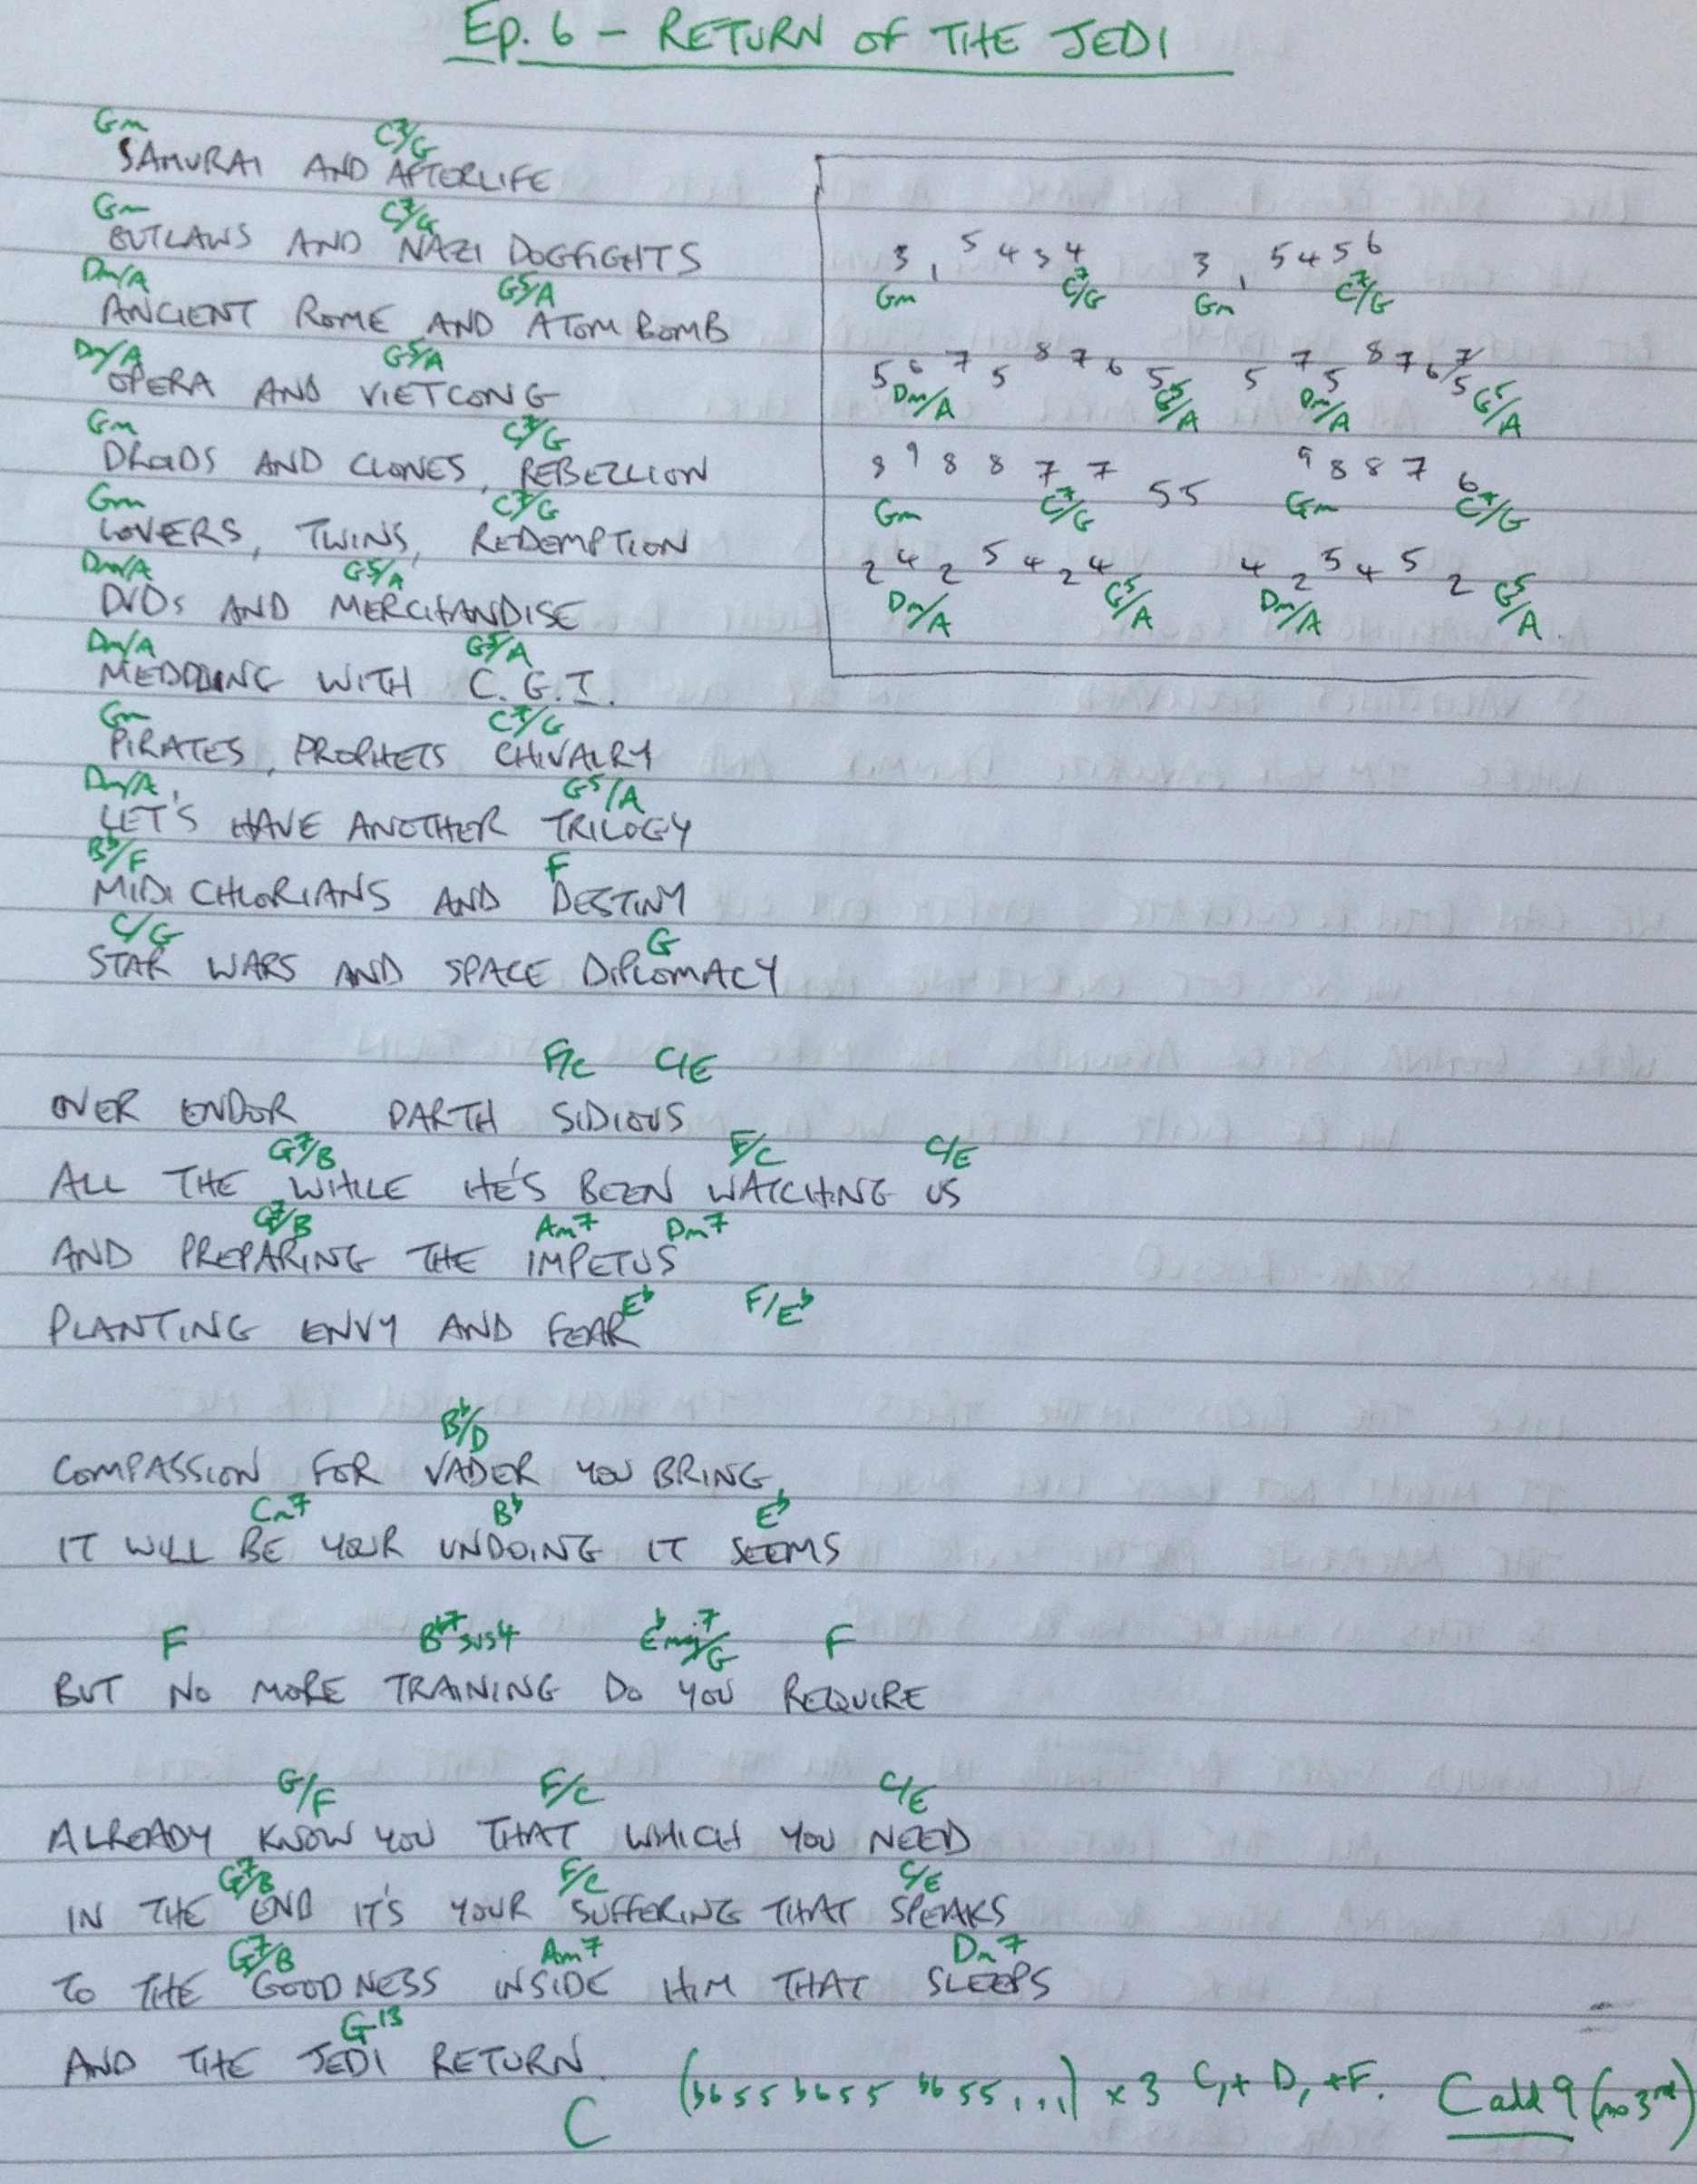 Ep. 6 – RETURN OF THE JEDI
Gm C7/G
SAMURAI AND AFTERLIFE
Gm C7/G
OUTLAWS AND NAZI DOGFIGHTS
Dm/A G5/A
ANCIENT ROME AND ATOM BOMB
Dm/A G5/A
OPERA AND VIETCONG
Gm C7/G
DROIDS AND CLONES, REBELLION
Gm C7/G
LOVERS, TWINS, REDEMPTION
Dm/A G5/A
DVDs AND MERCHANDISE
Dm/A G5/A
MEDDLING WITH C.G.I.
Gm C7/G
PIRATES, PROPHETS CHIVALRY
Dm/A G5/A
LET'S HAVE ANOTHER TRILOGY
Bb/F F
MIDI CHLORIANS AND DESTINY
C/G G
STAR WARS AND SPACE DIPLOMACY
3 1 5 4 3 4 3 1 5 4 5 6
Gm C7/G Gm C7/G
5 6 7 5 8 7 6 5 5 7 5 8 7 6 7/5
Dm/A G5/A Dm/A G5/A
8 9 8 8 7 7 5 5 9 8 8 7 6
Gm C7/G Gm C7/G
2 4 2 5 4 2 4 4 2 5 4 5 2
Dm/A G5/A Dm/A G5/A.
F/C C/E
OVER ENDOR DARTH SIDIOUS
G7/B F/C C/E
ALL THE WHILE HE'S BEEN WATCHING US
G7/B Am7 Dm7
AND PREPARING THE IMPETUS
Eb F/Eb
PLANTING ENVY AND FEAR
Bb/D
COMPASSION FOR VADER YOU BRING,
Cm7 Bb Eb
IT WILL BE YOUR UNDOING IT SEEMS
F Bb7sus4 Ebmaj7/G F
BUT NO MORE TRAINING DO YOU REQUIRE
G/F F/C C/E
ALREADY KNOW YOU THAT WHICH YOU NEED
G7/B F/C C/E
IN THE END IT'S YOUR SUFFERING THAT SPEAKS
G7/B Am7 Dm7
TO THE GOODNESS INSIDE HIM THAT SLEEPS
G13
AND THE JEDI RETURN.
C (b6 5 5 b6 5 5 b6 5 5, 1, 1) x 3 C, + D, + F. C add 9 (no 3rd)